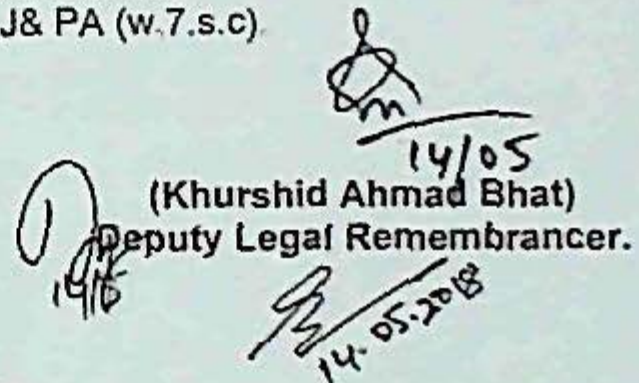 J& PA (w.7.s.c)
14/05
(Khurshid Ahmad Bhat)
Deputy Legal Remembrancer.
14/5
14.05.2018